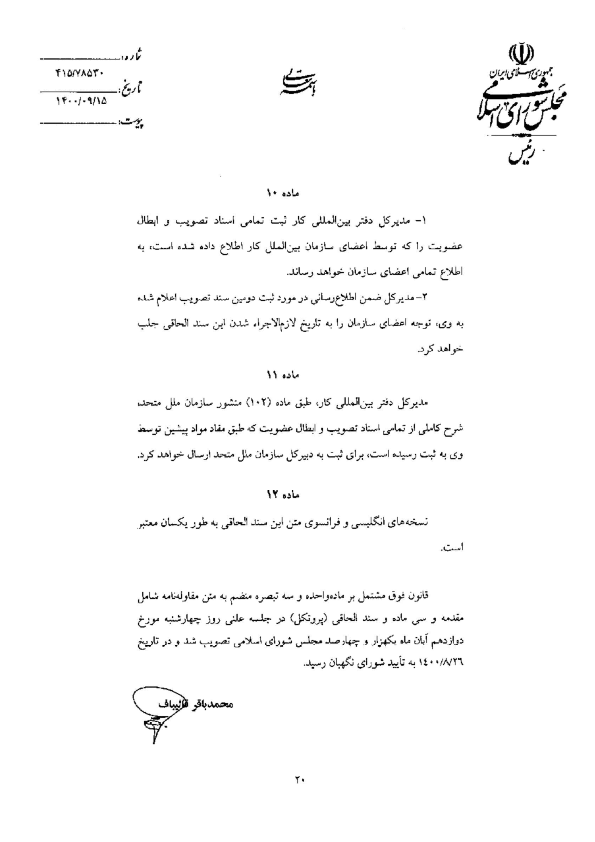 جمهوری اسلامی ایران
مجلس شورای اسلامی
رئیس
باسمه تعالی
شماره:
۴۱۵/۷۸۵۳۰
تاریخ:
۱۴۰۰/۰۹/۱۵
پیوست:
ماده ۱۰
۱- مدیرکل دفتر بین‌المللی کار ثبت تمامی اسناد تصویب و ابطال
عضویت را که توسط اعضای سازمان بین‌الملل کار اطلاع داده شده است، به
اطلاع تمامی اعضای سازمان خواهد رساند.
۲- مدیرکل ضمن اطلاع‌رسانی در مورد ثبت دومین سند تصویب اعلام شده
به وی، توجه اعضای سازمان را به تاریخ لازم‌الاجراء شدن این سند الحاقی جلب
خواهد کرد.
ماده ۱۱
مدیرکل دفتر بین‌المللی کار، طبق ماده (۱۰۲) منشور سازمان ملل متحد،
شرح کاملی از تمامی اسناد تصویب و ابطال عضویت که طبق مفاد مواد پیشین توسط
وی به ثبت رسیده است، برای ثبت به دبیرکل سازمان ملل متحد ارسال خواهد کرد.
ماده ۱۲
نسخه‌های انگلیسی و فرانسوی متن این سند الحاقی به طور یکسان معتبر
است.
قانون فوق مشتمل بر ماده‌واحده و سه تبصره منضم به متن مقاوله‌نامه شامل
مقدمه و سی ماده و سند الحاقی (پروتکل) در جلسه علنی روز چهارشنبه مورخ
دوازدهم آبان ماه یکهزار و چهارصد مجلس شورای اسلامی تصویب شد و در تاریخ
۱۴۰۰/۸/۲۶ به تأیید شورای نگهبان رسید.
محمدباقر قالیباف
۲۰